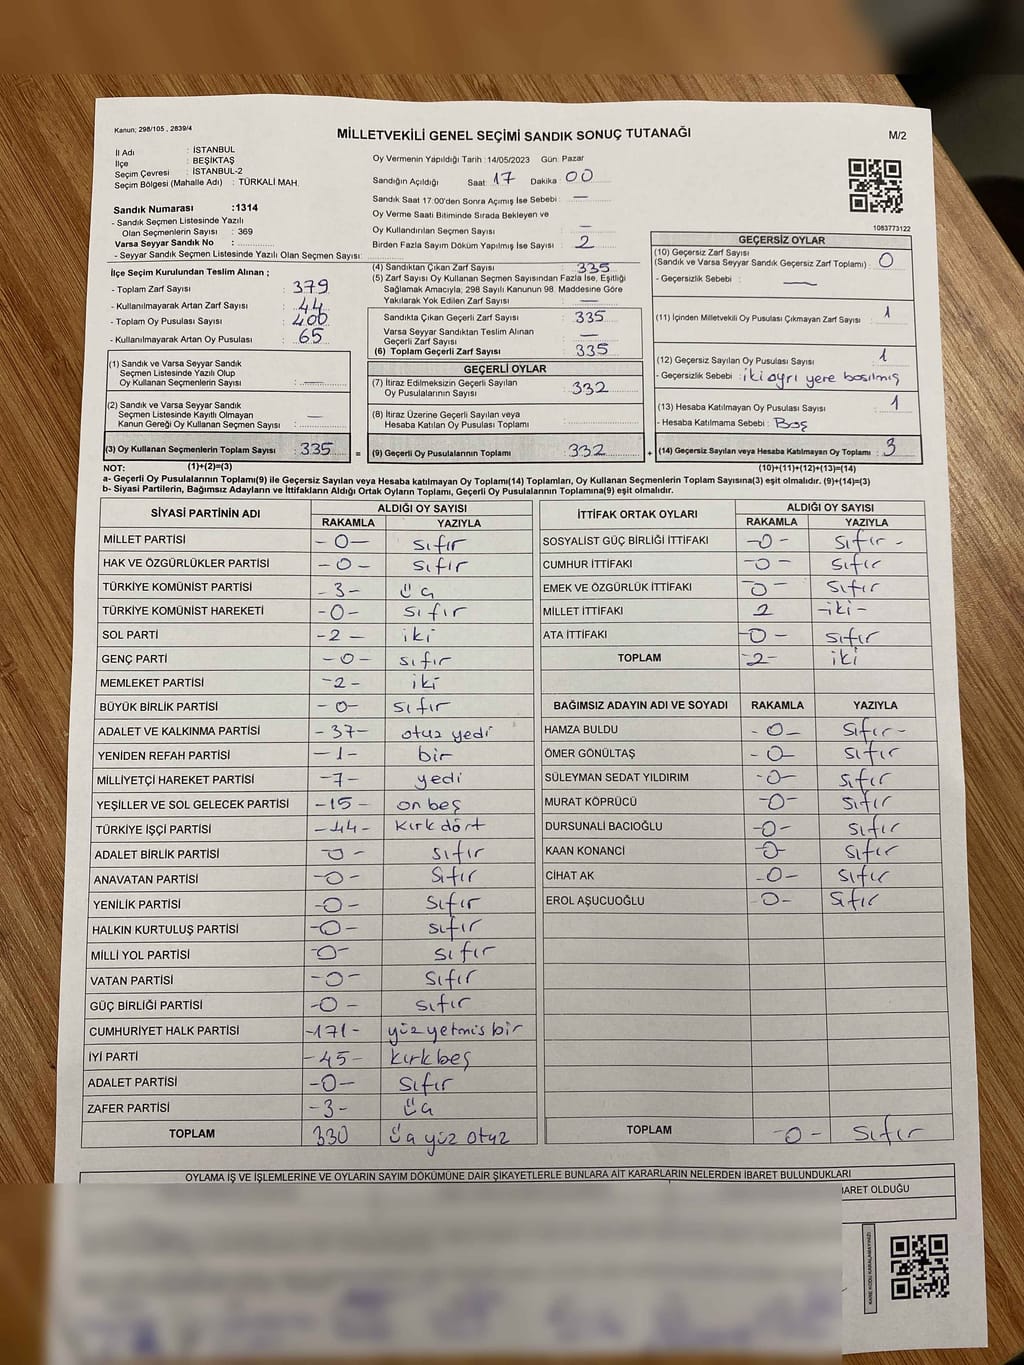 Kanun; 298/105 , 2839/4
MİLLETVEKİLİ GENEL SEÇİMİ SANDIK SONUÇ TUTANAĞI
M/2
İl Adı : İSTANBUL
İlçe : BEŞİKTAŞ
Seçim Çevresi : İSTANBUL-2
Seçim Bölgesi (Mahalle Adı) : TÜRKALİ MAH.
Oy Vermenin Yapıldığı Tarih : 14/05/2023 Gün: Pazar
Sandığın Açıldığı Saat : 17 Dakika : 00
Sandık Saat 17:00'den Sonra Açımış İse Sebebi : —
Oy Verme Saati Bitiminde Sırada Bekleyen ve
Oy Kullandırılan Seçmen Sayısı : —
Birden Fazla Sayım Döküm Yapılmış İse Sayısı : 2
1083773122
Sandık Numarası :1314
- Sandık Seçmen Listesinde Yazılı
Olan Seçmenlerin Sayısı : 369
Varsa Seyyar Sandık No :
- Seyyar Sandık Seçmen Listesinde Yazılı Olan Seçmen Sayısı:
İlçe Seçim Kurulundan Teslim Alınan ;
- Toplam Zarf Sayısı : 379
- Kullanılmayarak Artan Zarf Sayısı : 44
- Toplam Oy Pusulası Sayısı : 400
- Kullanılmayarak Artan Oy Pusulası : 65
(1) Sandık ve Varsa Seyyar Sandık
Seçmen Listesinde Yazılı Olup
Oy Kullanan Seçmenlerin Sayısı : —
(2) Sandık ve Varsa Seyyar Sandık
Seçmen Listesinde Kayıtlı Olmayan
Kanun Gereği Oy Kullanan Seçmen Sayısı : —
(3) Oy Kullanan Seçmenlerin Toplam Sayısı : 335 =
(4) Sandıktan Çıkan Zarf Sayısı : 335
(5) Zarf Sayısı Oy Kullanan Seçmen Sayısından Fazla İse, Eşitliği
Sağlamak Amacıyla, 298 Sayılı Kanunun 98. Maddesine Göre
Yakılarak Yok Edilen Zarf Sayısı : —
Sandıkta Çıkan Geçerli Zarf Sayısı : 335
Varsa Seyyar Sandıktan Teslim Alınan
Geçerli Zarf Sayısı : —
(6) Toplam Geçerli Zarf Sayısı : 335
GEÇERLİ OYLAR
(7) İtiraz Edilmeksizin Geçerli Sayılan
Oy Pusulalarının Sayısı : 332
(8) İtiraz Üzerine Geçerli Sayılan veya
Hesaba Katılan Oy Pusulası Toplamı :
(9) Geçerli Oy Pusulalarının Toplamı : 332 +
GEÇERSİZ OYLAR
(10) Geçersiz Zarf Sayısı
(Sandık ve Varsa Seyyar Sandık Geçersiz Zarf Toplamı) : 0
- Geçersizlik Sebebi : —
(11) İçinden Milletvekili Oy Pusulası Çıkmayan Zarf Sayısı : 1
(12) Geçersiz Sayılan Oy Pusulası Sayısı : 1
- Geçersizlik Sebebi : iki ayrı yere basılmış
(13) Hesaba Katılmayan Oy Pusulası Sayısı : 1
- Hesaba Katılmama Sebebi : Boş
(14) Geçersiz Sayılan veya Hesaba Katılmayan Oy Toplamı : 3
NOT: (1)+(2)=(3) (10)+(11)+(12)+(13)=(14)
a- Geçerli Oy Pusulalarının Toplamı(9) ile Geçersiz Sayılan veya Hesaba katılmayan Oy Toplamı(14) Toplamları, Oy Kullanan Seçmenlerin Toplam Sayısına(3) eşit olmalıdır. (9)+(14)=(3)
b- Siyasi Partilerin, Bağımsız Adayların ve İttifakların Aldığı Ortak Oyların Toplamı, Geçerli Oy Pusulalarının Toplamına(9) eşit olmalıdır.
SİYASİ PARTİNİN ADI ALDIĞI OY SAYISI
RAKAMLA YAZIYLA
MİLLET PARTİSİ -0- sıfır
HAK VE ÖZGÜRLÜKLER PARTİSİ -0- sıfır
TÜRKİYE KOMÜNİST PARTİSİ -3- üç
TÜRKİYE KOMÜNİST HAREKETİ -0- sıfır
SOL PARTİ -2- iki
GENÇ PARTİ -0- sıfır
MEMLEKET PARTİSİ -2- iki
BÜYÜK BİRLİK PARTİSİ -0- sıfır
ADALET VE KALKINMA PARTİSİ -37- otuz yedi
YENİDEN REFAH PARTİSİ -1- bir
MİLLİYETÇİ HAREKET PARTİSİ -7- yedi
YEŞİLLER VE SOL GELECEK PARTİSİ -15- on beş
TÜRKİYE İŞÇİ PARTİSİ -44- kırk dört
ADALET BİRLİK PARTİSİ -0- sıfır
ANAVATAN PARTİSİ -0- sıfır
YENİLİK PARTİSİ -0- sıfır
HALKIN KURTULUŞ PARTİSİ -0- sıfır
MİLLİ YOL PARTİSİ -0- sıfır
VATAN PARTİSİ -0- sıfır
GÜÇ BİRLİĞİ PARTİSİ -0- sıfır
CUMHURİYET HALK PARTİSİ -171- yüz yetmis bir
İYİ PARTİ -45- kırk beş
ADALET PARTİSİ -0- sıfır
ZAFER PARTİSİ -3- üç
TOPLAM 330 üç yüz otuz
İTTİFAK ORTAK OYLARI ALDIĞI OY SAYISI
RAKAMLA YAZIYLA
SOSYALİST GÜÇ BİRLİĞİ İTTİFAKI -0- sıfır -
CUMHUR İTTİFAKI -0- sıfır
EMEK VE ÖZGÜRLÜK İTTİFAKI -0- sıfır
MİLLET İTTİFAKI 2 -iki-
ATA İTTİFAKI -0- sıfır
TOPLAM -2- iki
BAĞIMSIZ ADAYIN ADI VE SOYADI RAKAMLA YAZIYLA
HAMZA BULDU -0- sıfır -
ÖMER GÖNÜLTAŞ -0- sıfır
SÜLEYMAN SEDAT YILDIRIM -0- sıfır
MURAT KÖPRÜCÜ -0- sıfır
DURSUNALİ BACIOĞLU -0- sıfır
KAAN KONANCİ -0- sıfır
CİHAT AK -0- sıfır
EROL AŞUCUOĞLU -0- sıfır
TOPLAM -0- sıfır
OYLAMA İŞ VE İŞLEMLERİNE VE OYLARIN SAYIM DÖKÜMÜNE DAİR ŞİKAYETLERLE BUNLARA AİT KARARLARIN NELERDEN İBARET BULUNDUKLARI
BARET OLDUĞU